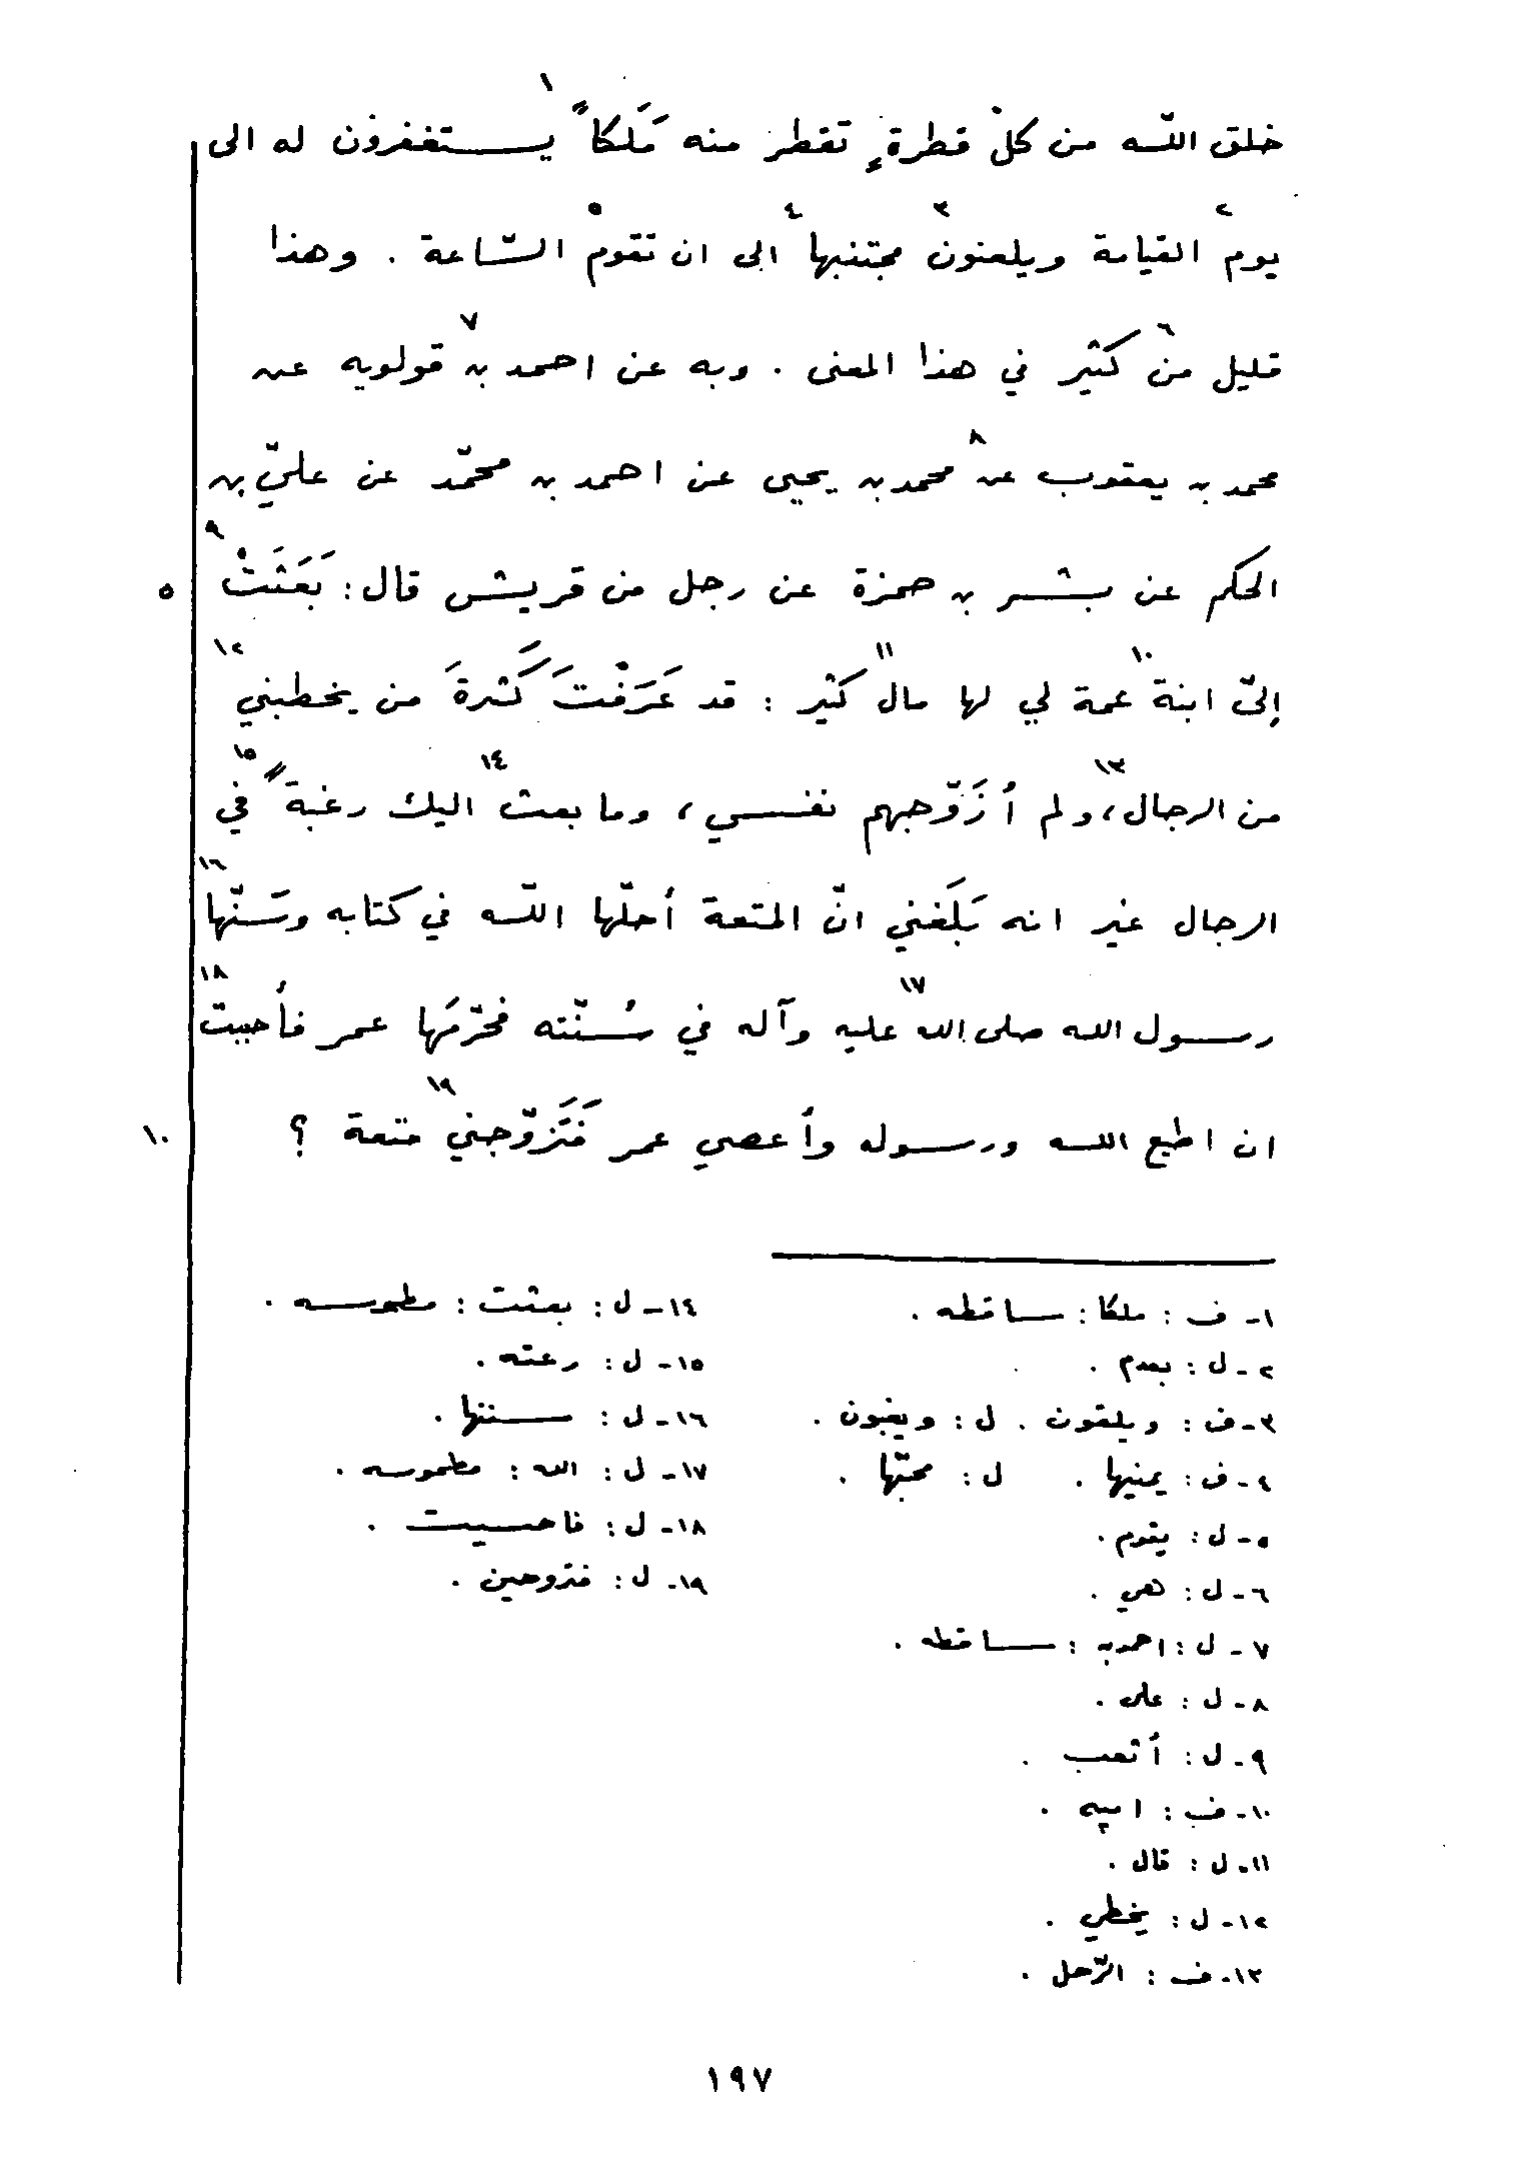 ١
خلق اللّه من كلّ قطرةٍ تقطر منه مَلَكاً يستغفرون له الى
٢ ٣ ٤ ٥
يوم القيامة ويلعنون مجتنبها الى ان تقوم السّاعة . وهذا
٦ ٧
قليل من كثير في هذا المعنى . وبه عن احمد بن قولويه عن
٨
محمد بن يعقوب عن محمد بن يحيى عن احمد بن محمّد عن عليّ بن
٩
الحكم عن بشر بن حمزة عن رجل من قريش قال : بَعَثَتْ
٥
١٠ ١١ ١٢
إليّ ابنة عمة لي لها مال كثير : قد عَرَفْتَ كَثرةَ من يخطبني
١٣ ١٤ ١٥
من الرجال ، ولم أُزَوّجهم نفسي ، وما بعث اليك رغبةً في
١٦
الرجال غير انه بَلَغني انّ المتعة أحلّها اللّه في كتابه وسَنّها
١٧ ١٨
رسول الله صلى الله عليه وآله في سُنّته فحّرمَها عمر فأحببت
١٩
ان اطيع الله ورسوله وأعصي عمر فَتَزوّجني متعة ؟
١٠
١ - ف : ملكا : ساقطه .
٢ - ل : بعدم .
٣ - ف : ويلقون . ل : ويغبون .
٤ - ف : يمنيها . ل : محبّها .
٥ - ل : يقوم .
٦ - ل : هي .
٧ - ل : احمد بن : ساقطه .
٨ - ل : على .
٩ - ل : أتعب .
١٠ - ف :
١١ - ل : قال .
١٢ - ل : يخطي .
١٣ - ف : الرّحل .
١٤ - ل : بعثت : مطموسه .
١٥ - ل : رعته .
١٦ - ل : سننها .
١٧ - ل : الله : مطموسه .
١٨ - ل : فاحسيت .
١٩ - ل : فتزوحين .
١٩٧